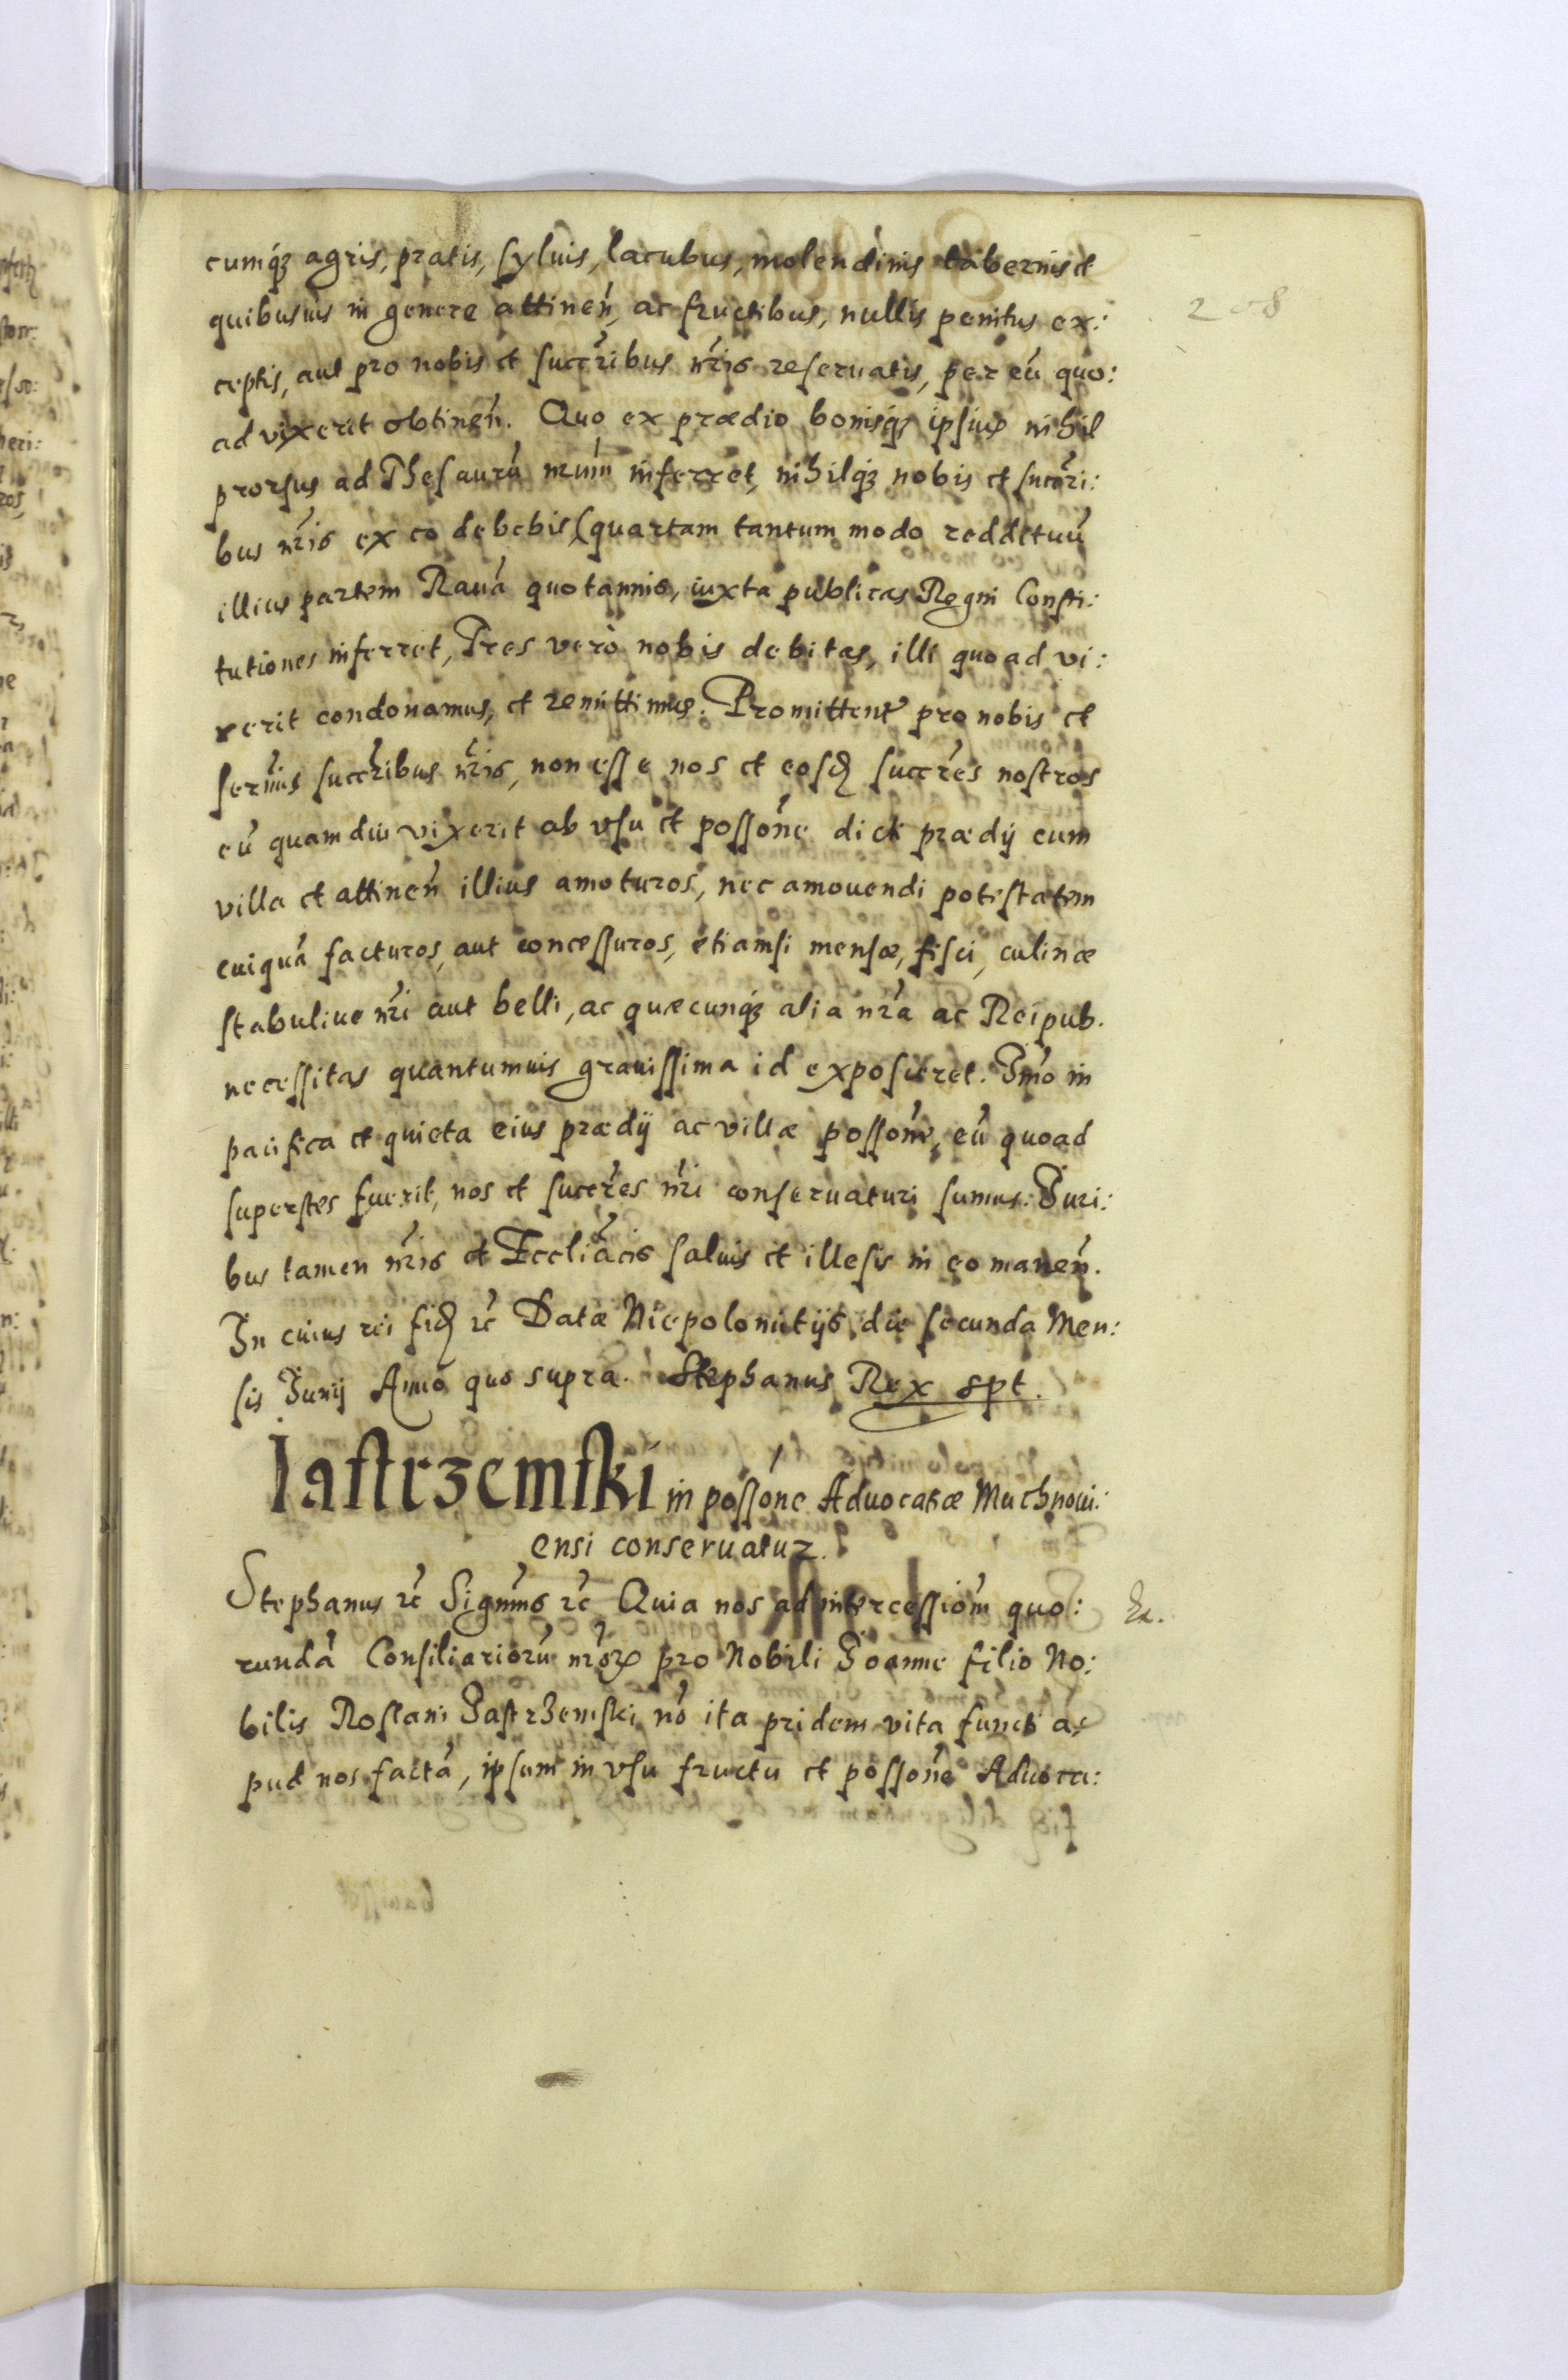 cumqꝫ agris, pratis, syluis, lacubus, molendinis tabernis et
208
quibusuis in genere attineñ, ac fructibus, nullis penitus ex:
ceptis, aut pro nobis et succ̃ribus nr̃is reseruatis, per eũ quo:
ad vixerit obtineñ. Quo ex prædio bonisqꝫ ipsius nihil
prorsus ad Thesaurũ nr̃um inferret, nihilqꝫ nobis et succ̃ri:
bus nr̃is ex eo debebis (quartam tantum modo reddituũ
illius partem Rauã quotannis, iuxta publicas Regni Consti:
tutiones inferret, Tres verò nobis debitas, illi quoad vi:
xerit condonamus, et remittimus. Promitteñt pro nobis et
serm̃is succ̃ribus nr̃is, non esse nos et eosd̃ succr̃es nostros
eũ quam diu vixerit ab vsu et possõne dicti prædij cum
villa et attineñ illius amoturos, nec amouendi potestatem
cuiquã facturos, aut concessuros, etiamsi mensæ, fisci, culinæ
stabuliue nr̃i aut belli, ac quæcunqꝫ alia nr̃a ac Reipub.
necessitas quantumuis grauissima id exposceret. Im̃o in
pacifica et quieta eius prædij ac villæ possõne, eũ quoad
superstes fuerit, nos et succr̃es nr̃i conseruaturi sumus. Juri:
bus tamen nr̃is et Eccliãcis saluis et illesis in eo maneñ.
In cuius rei fid̃ ꝛc̃ Datæ Niepolomitijs die secunda Men:
sis Junij Anno quo supra. Stephanus Rex spt.
Jastrzemski in possõne Aduocatiæ Muchnoui:
ensi conseruatur.
Stephanus ꝛc̃ Signm̃s ꝛc̃ Quia nos ad intercessiõm quo:
rundã Consiliariorũ nr̃orꝝ pro Nobili Joanne filio No:
bilis Roslani Jastrzemski nõ ita pridem vita functi a:
pud nos factã, ipsum in vsu fructu et possõne Aduoca: